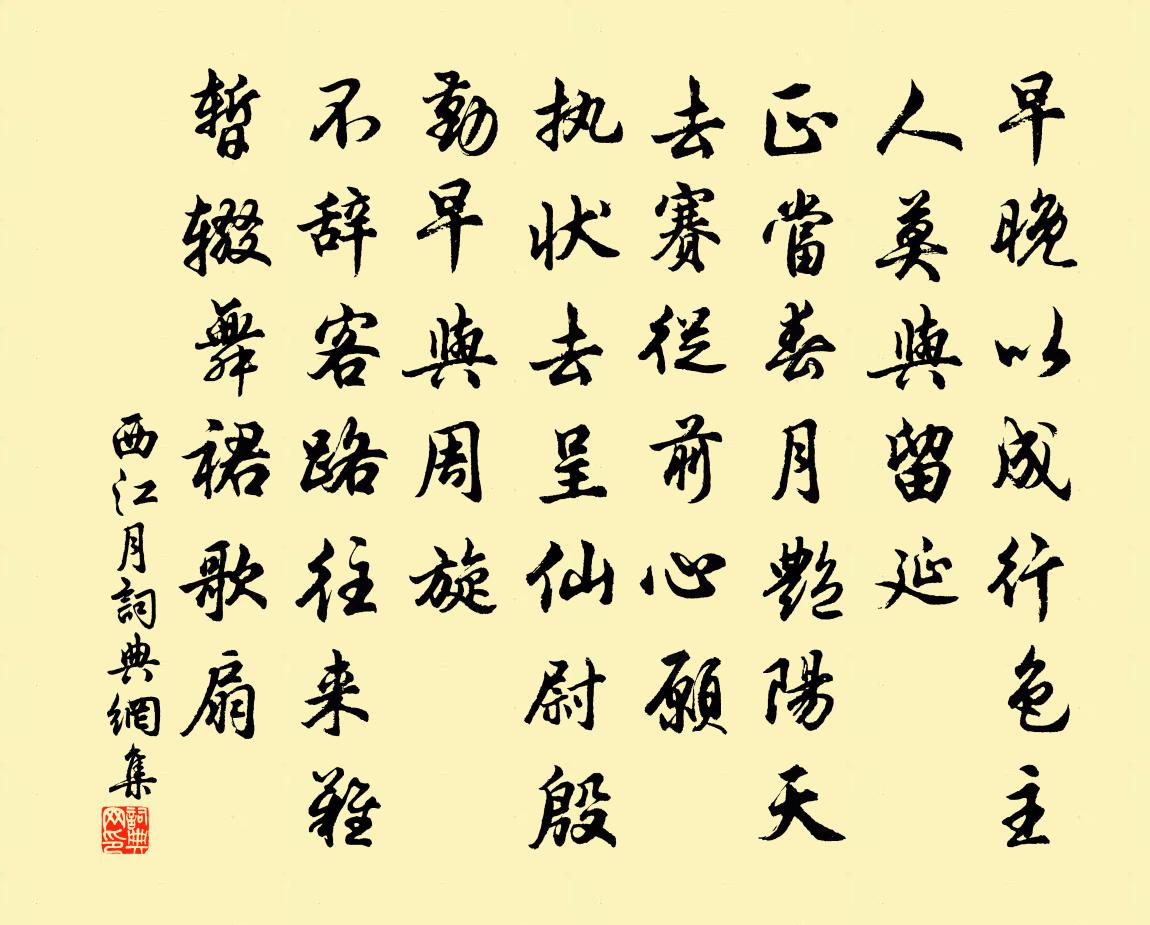 早晚以成行色主
人莫與留延
正當春月艷陽天
去賽從前心願
执状去呈仙尉殷
勤早與周旋
不辞客路往来難
暂辍舞裙歌扇
西江月詞典網集
詞典网印